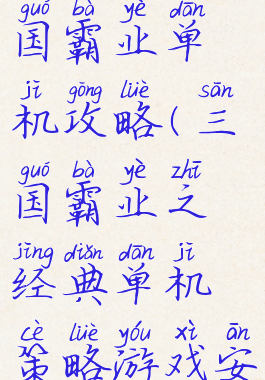 guó bà yè dān
国霸业单
jī gōng lüè sān
机攻略(三
guó bà yè zhī
国霸业之
jīng diǎn dān jī
经典单机
cè lüè yóu xì ān
策略游戏安